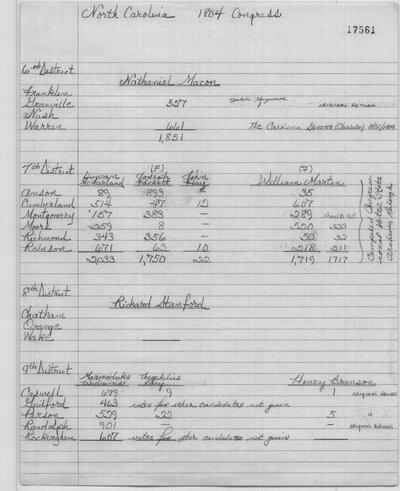 North Carolina 1804 Congress
17561
6th District
Nathaniel Macon
Franklin
Granville 557 ORIGINAL RETURNS
Nash
Warren 661 The Carolina Gazette (Charleston)
1,851
7th District (F) (F)
Duncan McFarland Joseph Pickett John Hay William Martin
Anson 89 893 35
Cumberland 514 47 12 607
Montgomery 157 383 — 289 should be
Moore 259 8 — 520 523
Richmond 343 356 — 50 52
Robeson 671 63 10 218 211
2,033 1,750 22 1,719 1717
8th District
Richard Stanford
Chatham
Orange
Wake
9th District
Marmaduke Williams Theophilus Lacy Henry Branson
Caswell 679 9 1 original Returns
Guilford 463 votes for other candidates not given
Person 529 22 5 "
Randolph 901 — — original Returns
Rockingham 607 votes for other candidates not given